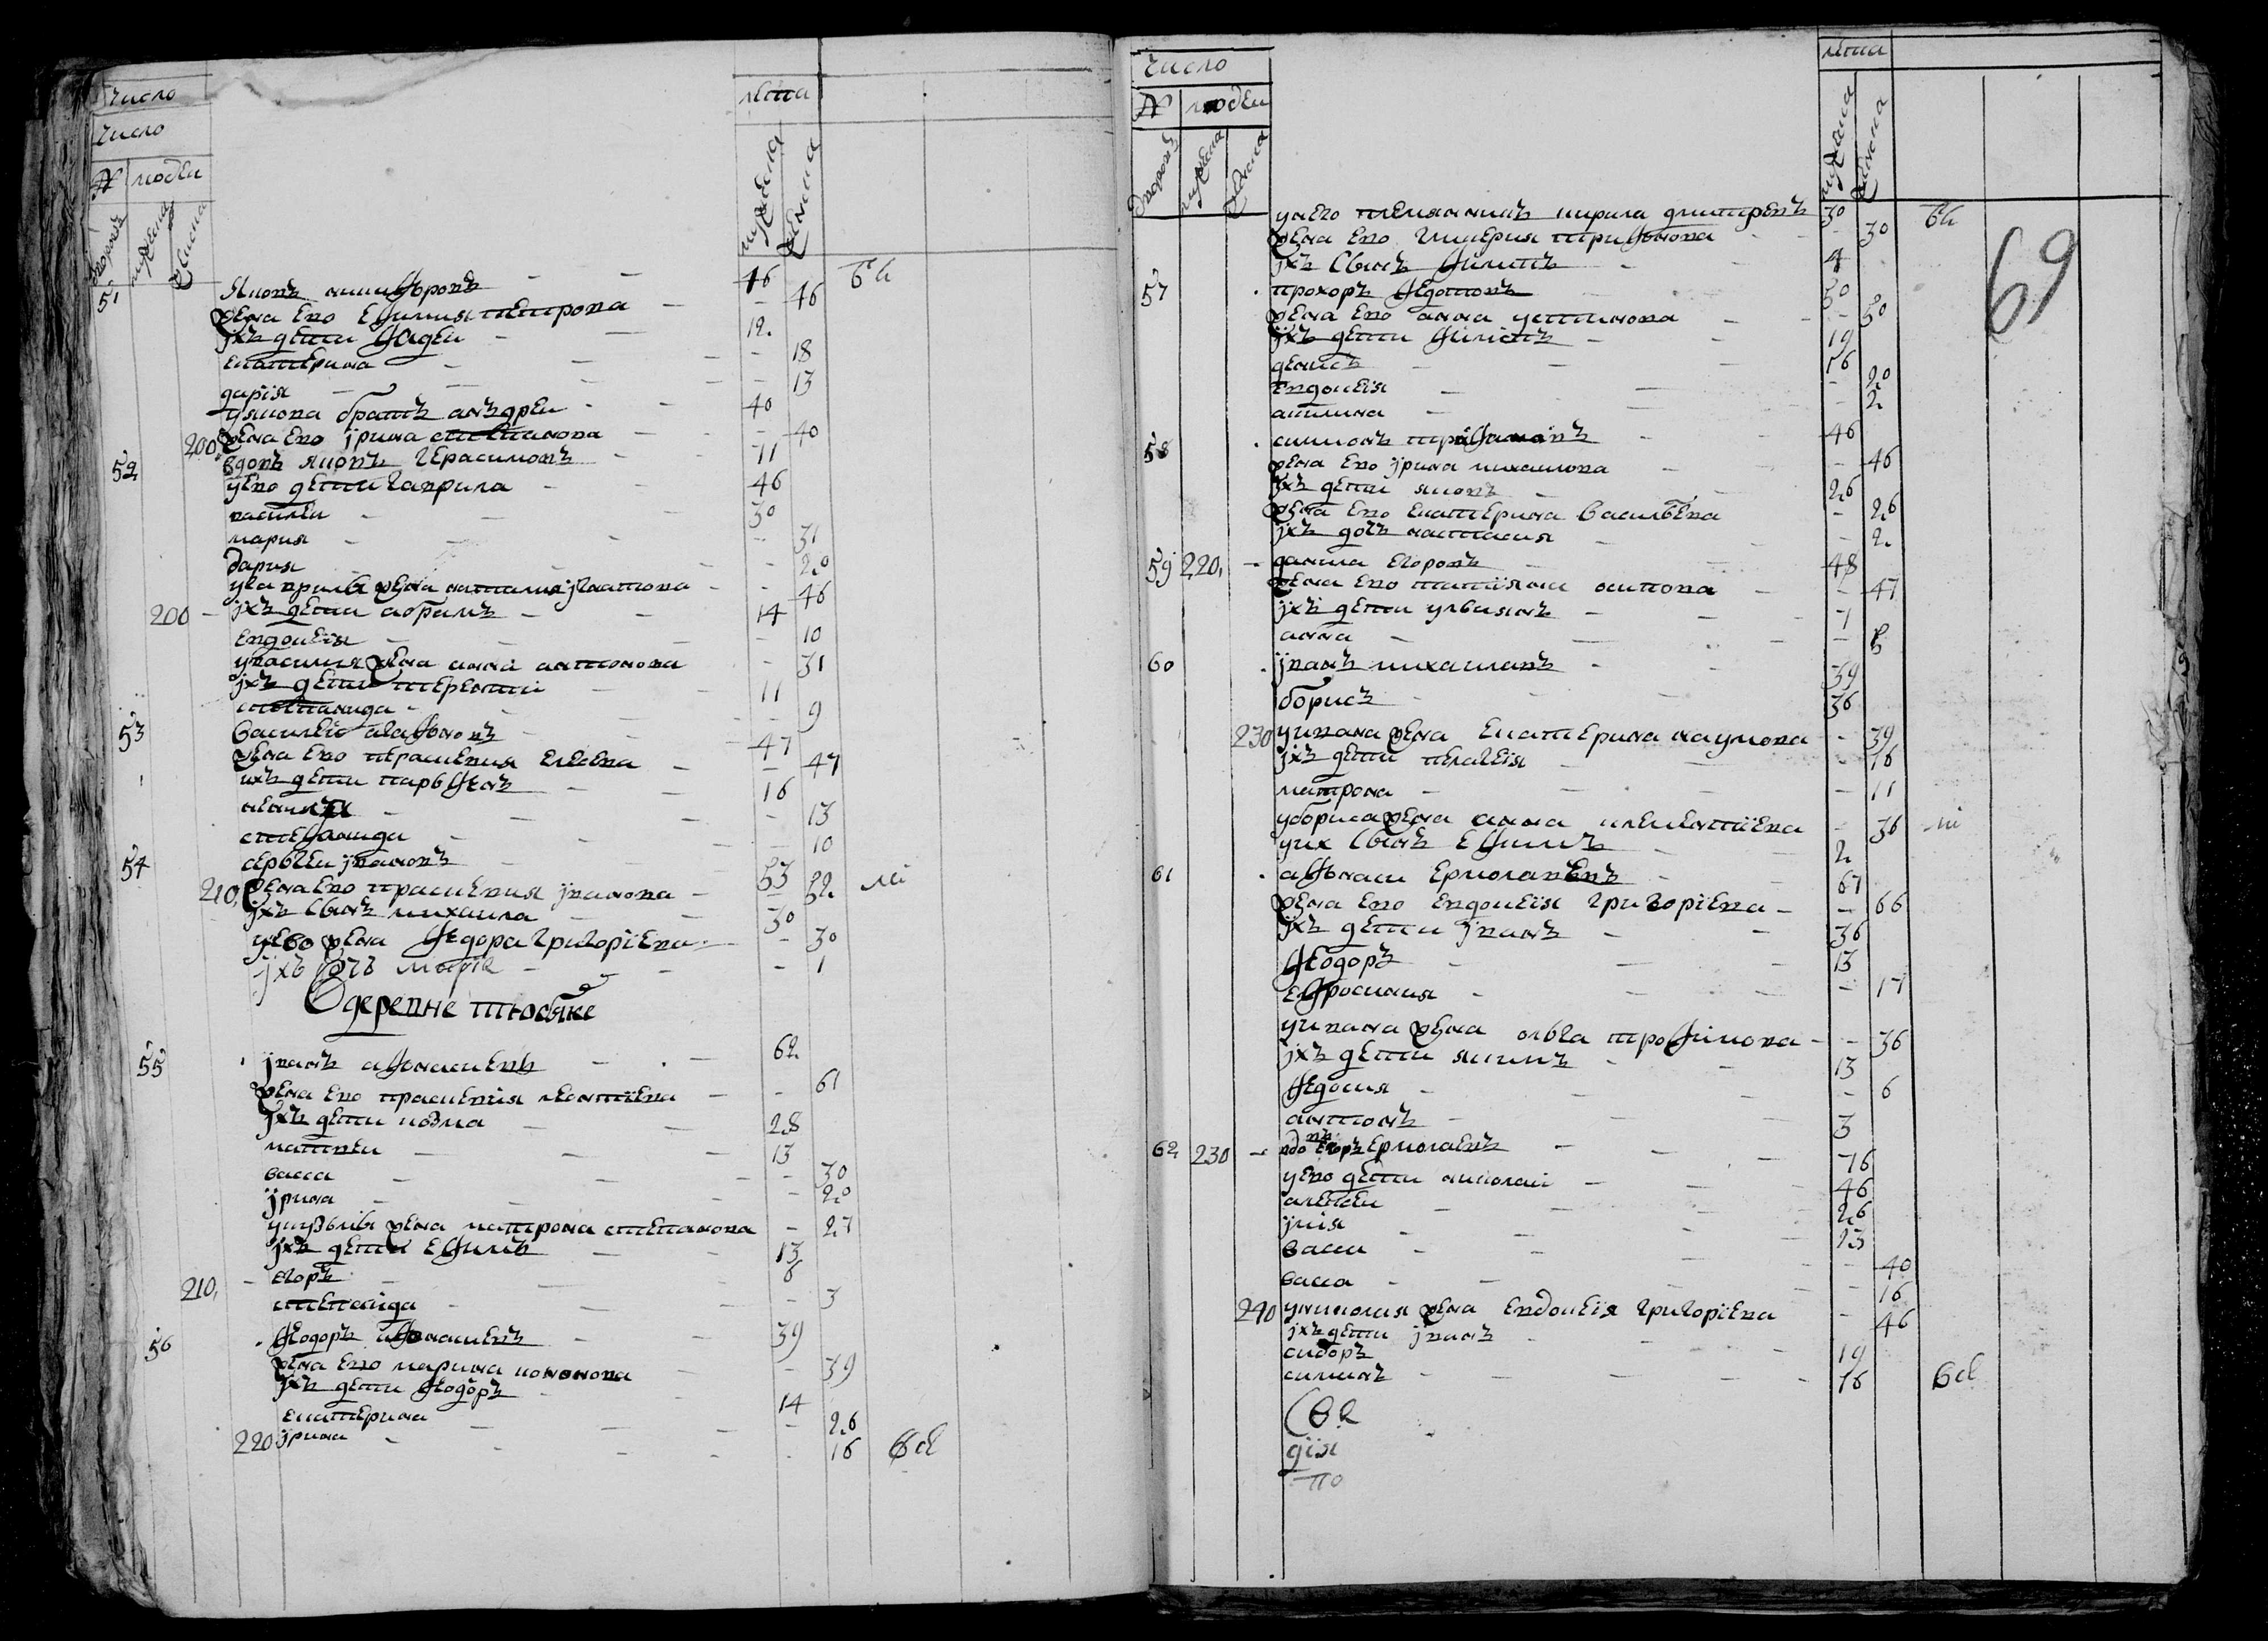 число
число
№ людеи
дворовъ
мужеска
женска
лета
мужеска
женска
51 Яковъ никифоровъ 46 бы
жена Ево Ефимия петрова 46
јхъ дети фадеи 12
екатерина 18
дарїя 13
у якова братъ андреи 40
200 жена Ево јрина степанова 40
52 вдовъ Яковъ Герасимовъ 71
у Ево дети гаврила 46
василеи 30
мария 31
дария 20
у гаврилы жена наталия игнатова 46
200 јхъ дети абрамъ 14
Евдокеїя 10
у василия жена анна антонова 31
јхъ дети терентии 11
степанида 9
53 василеи агафоновъ 47
жена Ево парасковия 47
ихъ дети парфенъ 16
13
степанида 10
54 сергеи јвановъ 53
210 жена Ево прасковия јванова 52 ли
јхъ сынъ михаила 30
у Ево жена федора григорїева 30
јхъ дочь марїя 1
В деревне тюбяке
55 јванъ афонасиевъ 62
жена Ево прасковїя леонтїева 61
јхъ дети козма 28
матвеи 13
васса 30
јрина 20
у кузмы жена матрона степанова 27
јхъ дети Ефимъ 13
егоръ 6
210 степанида 3
56 федоръ афонасиевъ 39
жена Ево марина кононова 39
јхъ дети федоръ 14
екатерина 26
220 јрина 16 всѣ
число
№ людеи
дворовъ
мужеска
женска
лета
мужеска
женска
69
у него племянникъ кирила дмитреевъ 30 бы
жена Ево гликерия трифонова 30
јхъ сынъ филипъ 4
57 прохоръ федотовъ 50
жена Ево анна устинова 50
јхъ дети филипъ 19
денисъ 16
Евдокеїя 20
акилина 2
58 симионъ трифановъ 46
жена Ево јрина михаилова 46
јхъ дети яковъ 26
жена Ево екатерина васильева 26
јхъ дочь настасия 2
59 220 данила егоровъ 48
жена Ево татїяна осипова 47
јхъ дети ульянъ 7
анна 8
60 јванъ михаиловъ 39
борисъ 36
230 у ивана жена Екатерина наумова 39
јхъ дети пелагея 16
матрона 11
у бориса жена анна клементїева 36 ли
у них сынъ Ефимъ 2
61 афонаси Ермолаевъ 67
жена Ево Евдокеїя григорїева 66
јхъ дети јванъ 36
федоръ 13
ефросиния 17
у ивана жена ольга трофимова 36
јхъ дети якимъ 13
федосия 6
антонъ 3
62 230 вдовъ Егоръ Ермолаевъ 76
у Ево дети николаи 46
алексеи 26
јлия 23
васса 40
васса 16
240 у николая жена Евдокеїя григорїева 46
јхъ дети јванъ
сидоръ 19
симионъ 16 всѣ
дїя
по